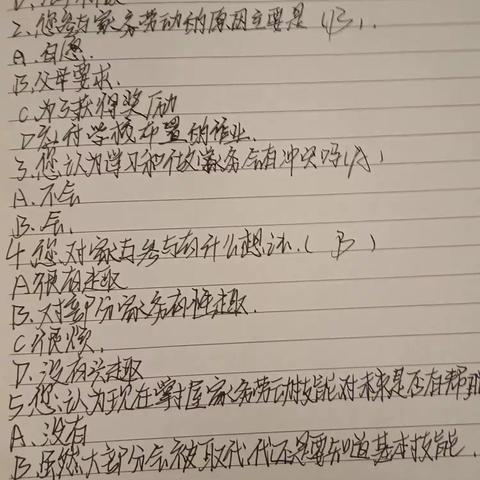 2、您参与家务劳动的原因主要是(B).
A.自愿.
B.父母要求.
C.为了获得奖励
D应付学校布置的作业.
3、您认为学习和做家务会有冲突吗(A)
A.不会
B.会.
4.您对家务参与有什么想法.(B)
A很有趣
B.对部分家务有性趣.
C很烦.
D.没有兴趣
5.您认为现在掌握家务劳动技能对未来是否有帮助
A.没有
B虽然大部分会被取代,但还是要知道基本技能.